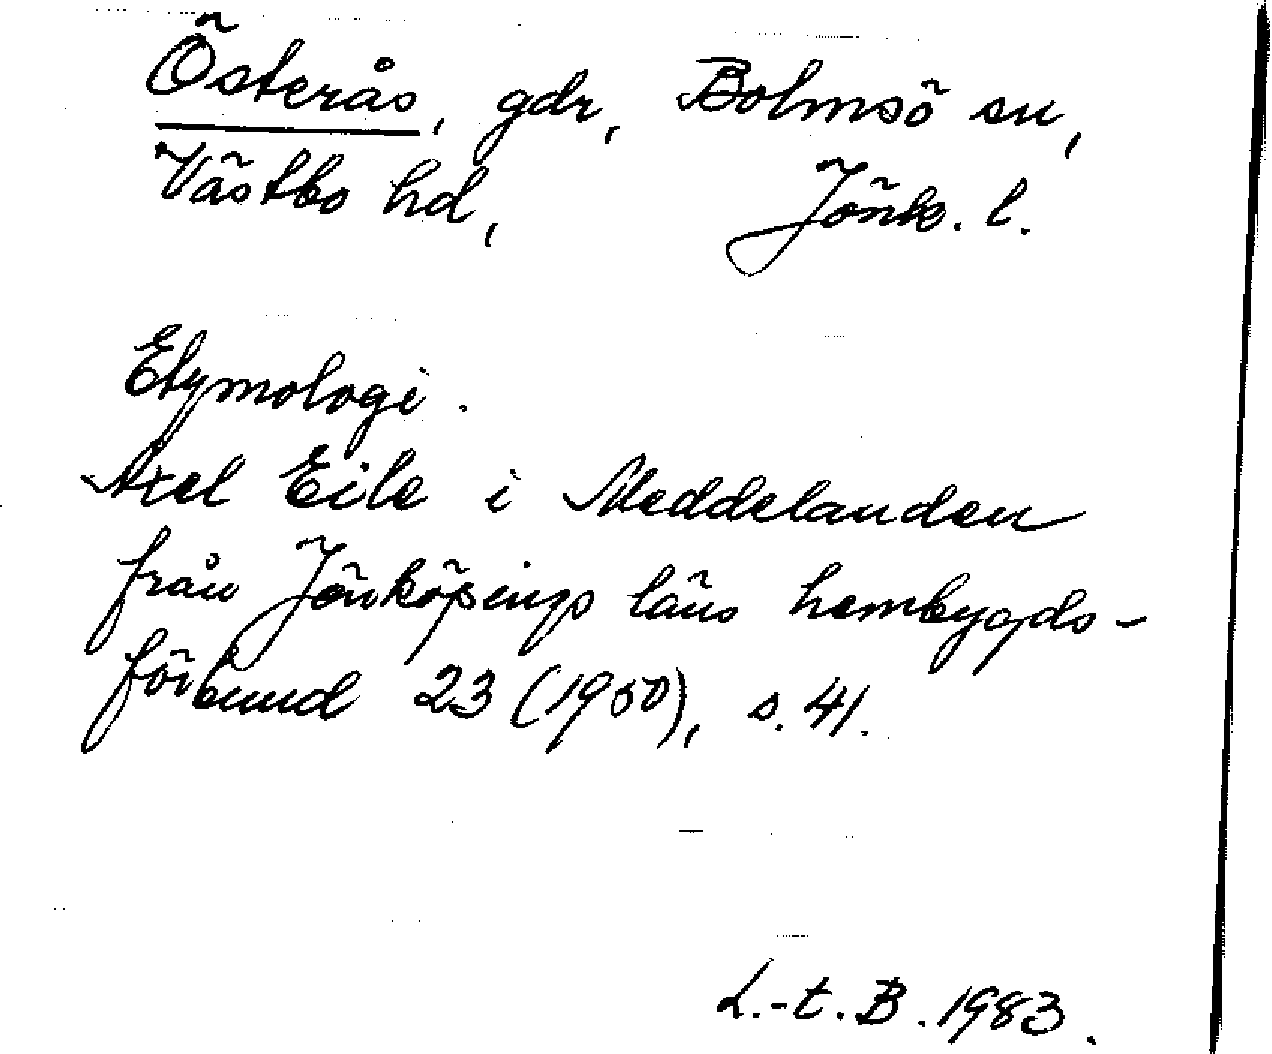 Österås, gdr, Bolmsö sn,
Västbo hd, Jönk. l.
Etymologi.
Axel Eile i Meddelanden
från Jönköpings läns hembygds-
förbund 23 (1950), s. 41.
L.-t. B. 1983.